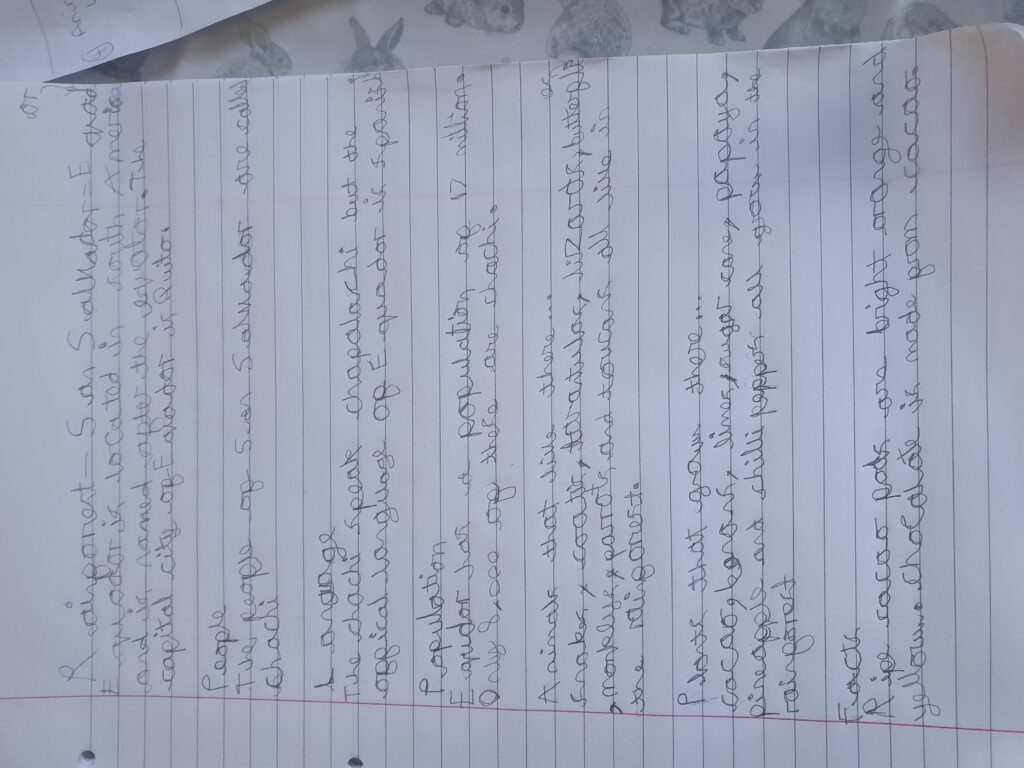 A ainporext - San Salvador - E quad
Equador is located in south America
and is named after the equator. The
capital city of Eduador is Quito.
People
The people of San Salvador are called
Chachi
Launge
The chachi speak chapalachi but the
offical language of Equador is Spanish
Population
Equdor has a population of 17 million
Only 9,000 of these are chachi.
Aminds that live there...
Snakes, coatis, tarantulas, lizards, butterflies
monkeys, parrots, and toucans all live in
the rainforest.
Plants that grow there...
cacao, bananas, limes, sugar cane, papaya,
pineapple and chilli pepper all grow in the
rainforest
Facts
Ripe cacao pods are bright orange and
yellow. chocolate is made from cacao.
or